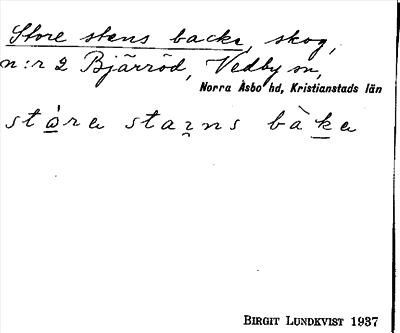 Store stens backe, skog,
n:r 2 Bjärröd, Vedby sn,
Norra Åsbo hd, Kristianstads län
stòra staiṉs bàka
BIRGIT LUNDKVIST 1937